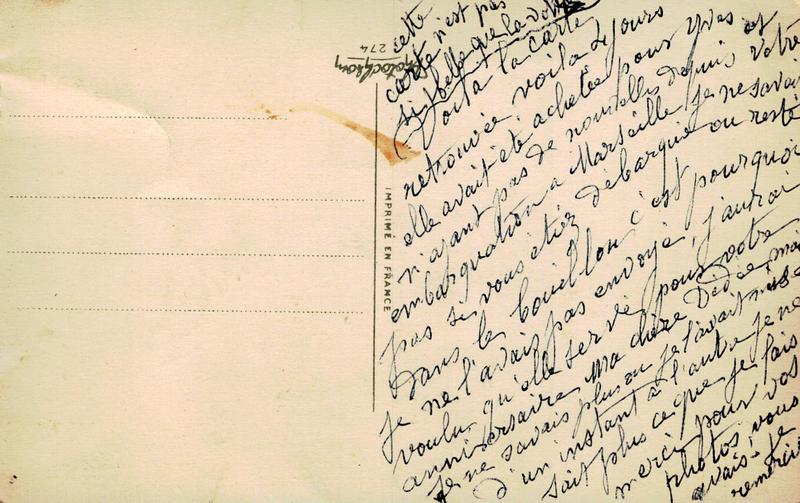 cette
carte n'est pas
si belle que la votre
Voila la carte
retrouvée, voila 2 jours
elle avait été achetée pour Yves et
n'ayant pas de nouvelles depuis votre
embarquation a Marseille je ne savais
pas si vous étiez débarqué ou resté
dans les bouillon c'est pourquoi
je ne l'avais pas envoyé, j'aurai
voulu qu'elle serve pour votre
anniversaire Ma chère Dédée mai
je ne savais plus ou je l'avait mise
d'un instant a l'autre je ne
sait plus ce que je fais
merci pour vos
photos, vous
avais-je
remercié
Photochrom
274
IMPRIMÉ EN FRANCE